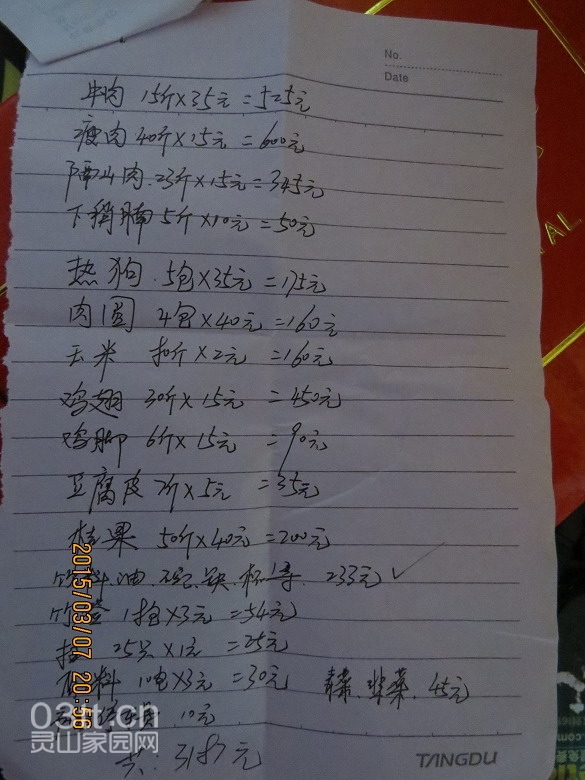 No.
Date
牛肉 15斤×35元=525元
瘦肉 40斤×15元=600元
隔山肉.23斤×15元=345元
下稍腩 5斤×10元=50元
热狗.5包×35元=175元
肉圆 4包×40元=160元
玉米 斤×2元=160元
鸡翅 30斤×15元=450元
鸡脚 6斤×15元=90元
豆腐皮 7斤×5元=35元
果 50斤×40元=200元
油. 杯等.233元
竹 ×3元=54元
25只×1元=25元
料 10包×3元=30元 韭菜.45元
10元
共:3187元
TANGDU
2015/03/07 20:56
灵山家园网